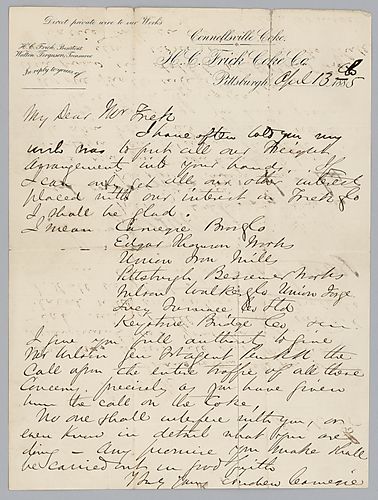 Direct private wire to our Works
Connellsville Coke.
H. C. Frick, President
Walton Ferguson, Treasurer
In reply to yours
H. C. Frick Coke Co.
Pittsburgh, April 13 1885
My Dear Mr Frick
I have often told you my
wish was to put all our freight
arrangement into your hand. If
I can only get all our other interest
placed with our interest in Frick & Co
I shall be glad.
I mean Carnegie Bros & Co
Edgar Thomson Works
Union Iron Mills
Pittsburgh Bessemer Works
Wilson Walker & Co Union Forge
Lucy Furnace Co Ltd
Keystone Bridge Co
I give you full authority to give
Mr gen Ft agent the
call upon the entire traffic of all these
Concerns precisely as you have given
him the call on the Coke.
No one shall interfere with you, or
even know in detail what you are
doing — Any promise you make shall
be carried out in good faith
Yours Andrew Carnegie